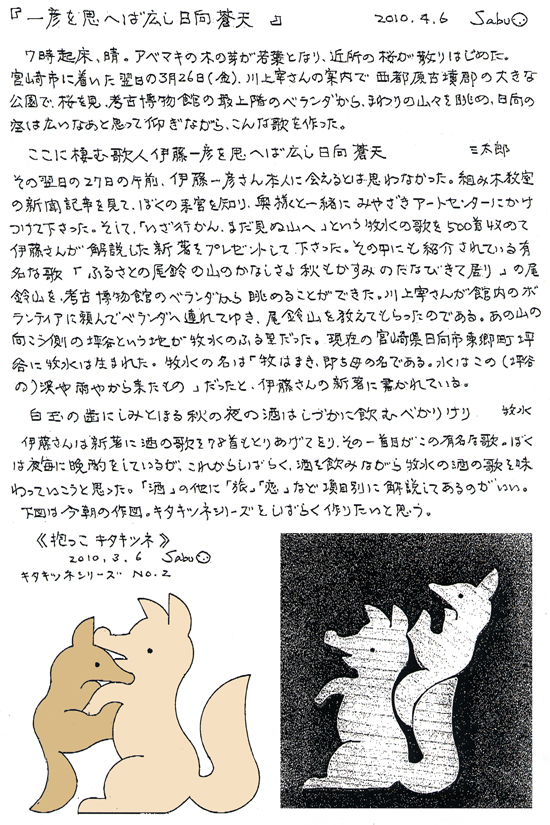 『一彦を思へば広し日向蒼天 』 2010.4.6 Sabu
7時起床、晴。アベマキの木の芽が若葉となり、近所の桜が散りはじめた。
宮崎市に着いた翌日の3月26日(金)、川上宰さんの案内で西都原古墳郡の大きな
公園で、桜を見、考古博物館の最上階のベランダから、まわりの山々を眺め、日向の
空は広いなあと思って仰ぎながら、こんな歌を作った。
ここに棲む歌人伊藤一彦を思へば広し日向蒼天 三太郎
その翌日の27日の午前、伊藤一彦さん本人に会えるとは思わなかった。組み木教室
の新聞記事を見て、ぼくの来宮を知り、奥様と一緒にみやざきアートセンターにかけ
つけて下さった。そして、「いざ行かん、まだ見ぬ山へ」という牧水の歌を500首収めて
伊藤さんが解説した新著をプレゼントして下さった。その中にも紹介されている有
名な歌「ふるさとの尾鈴の山のかなしさよ秋もかすみのたなびきて居り」の尾
鈴山を、考古博物館のベランダから眺めることができた。川上宰さんが館内のボ
ランティアに頼んでベランダへ連れてゆき、尾鈴山を教えてもらったのである。あの山の
向こう側の坪谷という地が牧水のふる里だった。現在の宮崎県日向市東郷町坪
谷に牧水は生まれた。牧水の名は「牧はまき、即ち母の名である。水はこの(坪谷
の)渓や雨やから来たもの」だったと、伊藤さんの新著に書かれている。
白玉の歯にしみとほる秋の夜の酒はしづかに飲むべかりけり 牧水
伊藤さんは新著に酒の歌を78首もとりあげており、その一首目がこの有名な歌。ぼく
は夜毎に晩酌をしているが、これからしばらく、酒を飲みながら牧水の酒の歌を味
わっていこうと思った。「酒」の他に「旅」「恋」など項目別に解説してあるのがいい。
下図は今朝の作図。キタキツネシリーズをしばらく作りたいと思う。
《抱っこ キタキツネ》
2010.3.6 Sabu
キタキツネシリーズ NO.2